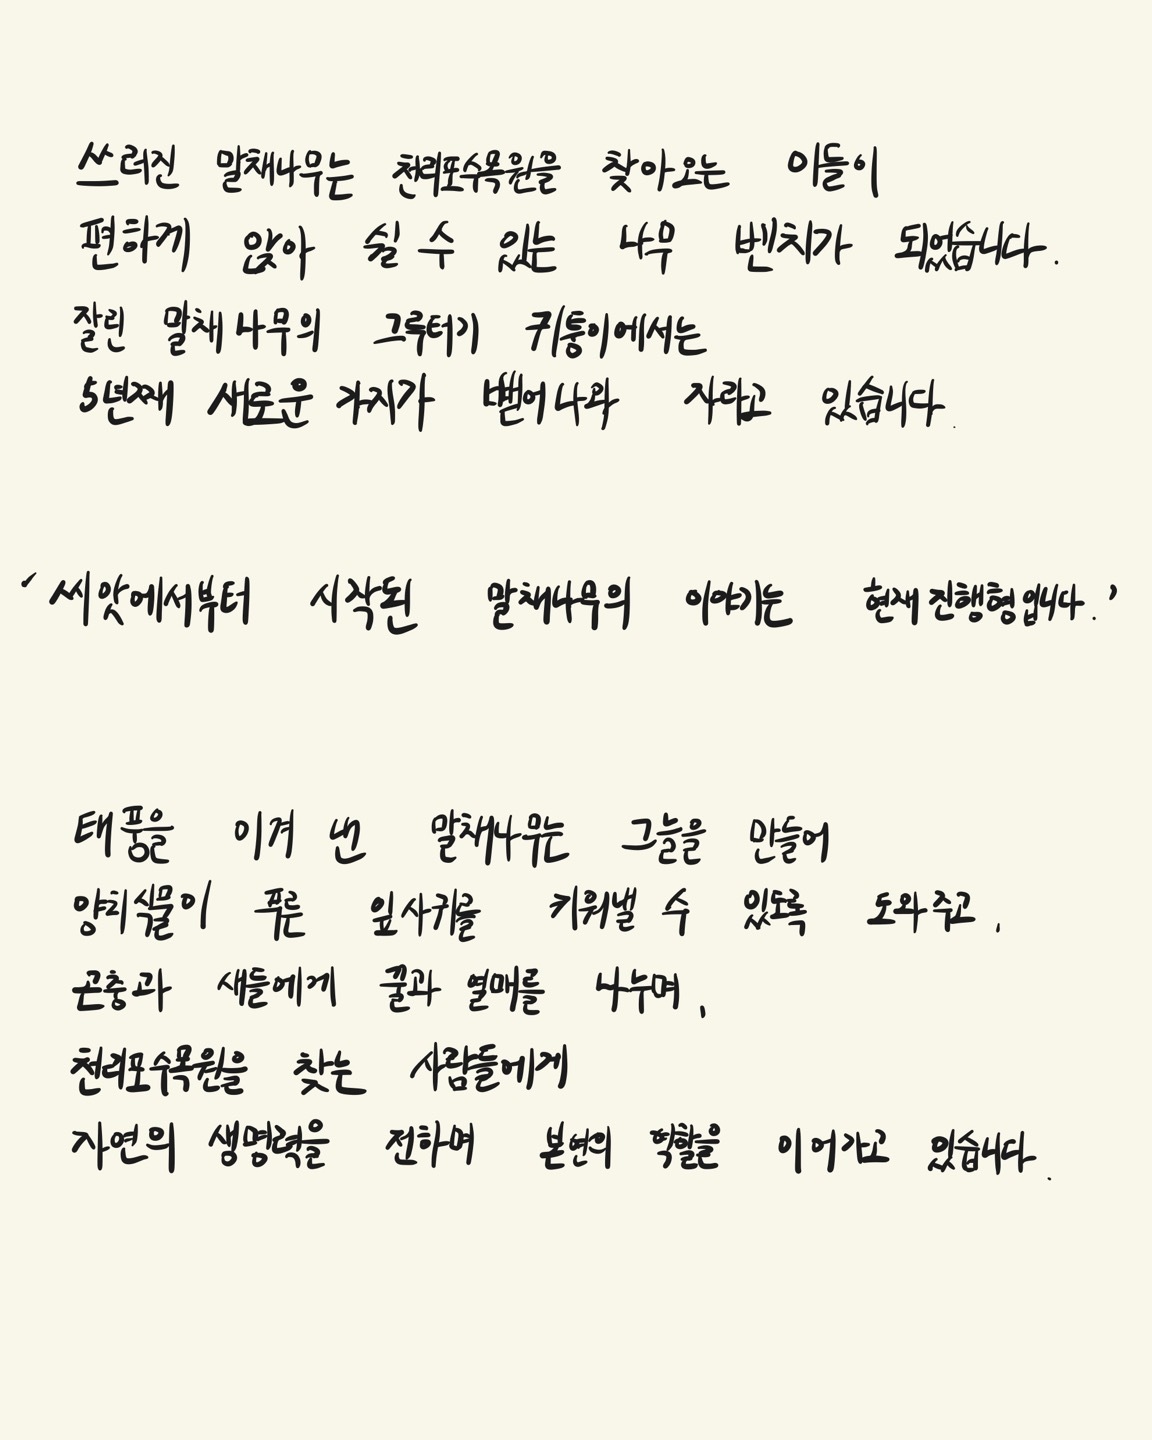 쓰러진 말채나무는 천리포수목원을 찾아오는 이들이
편하게 앉아 쉴 수 있는 나무 벤치가 되었습니다.
잘린 말채나무의 그루터기 귀퉁이에서는
5년째 새로운 가지가 뻗어나와 자라고 있습니다.
'씨앗에서부터 시작된 말채나무의 이야기는 현재 진행형입니다.'
태풍을 이겨 낸 말채나무는 그늘을 만들어
양치식물이 푸른 잎사귀를 키워낼 수 있도록 도와주고,
곤충과 새들에게 꿀과 열매를 나누며,
천리포수목원을 찾는 사람들에게
자연의 생명력을 전하며 본연의 역할을 이어가고 있습니다.